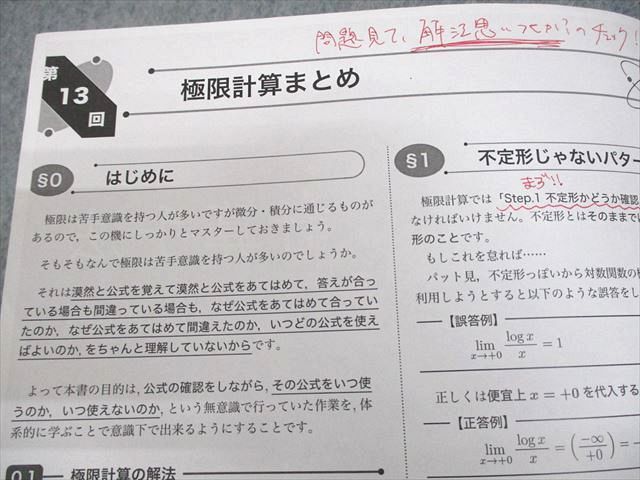 問題見て、解法思いつくか!?のチェック!
第
13
回
極限計算まとめ
§0 はじめに
極限は苦手意識を持つ人が多いですが微分・積分に通じるものが
あるので，この機にしっかりとマスターしておきましょう。
そもそもなんで極限は苦手意識を持つ人が多いのでしょうか。
それは漠然と公式を覚えて漠然と公式をあてはめて，答えが合っ
ている場合も間違っている場合も，なぜ公式をあてはめて合ってい
たのか，なぜ公式をあてはめて間違えたのか，いつどの公式を使え
ばよいのか，をちゃんと理解していないからです。
よって本書の目的は，公式の確認をしながら，その公式をいつ使
うのか，いつ使えないのか，という無意識で行っていた作業を，体
系的に学ぶことで意識下で出来るようにすることです。
0.1 極限計算の解法
§1 不定形じゃないパター
まず!!
極限計算では「Step.1 不定形かどうか確認
なければいけません。不定形とはそのままでは
形のことです。
もしこれを怠れば……
パット見，不定形っぽいから対数関数の
利用しようとすると以下のような誤答をし
【誤答例】
lim x→+0 log x / x = 1
正しくは便宜上 x = +0 を代入する
【正答例】
lim x→+0 log x / x = (−∞ / +0) = −